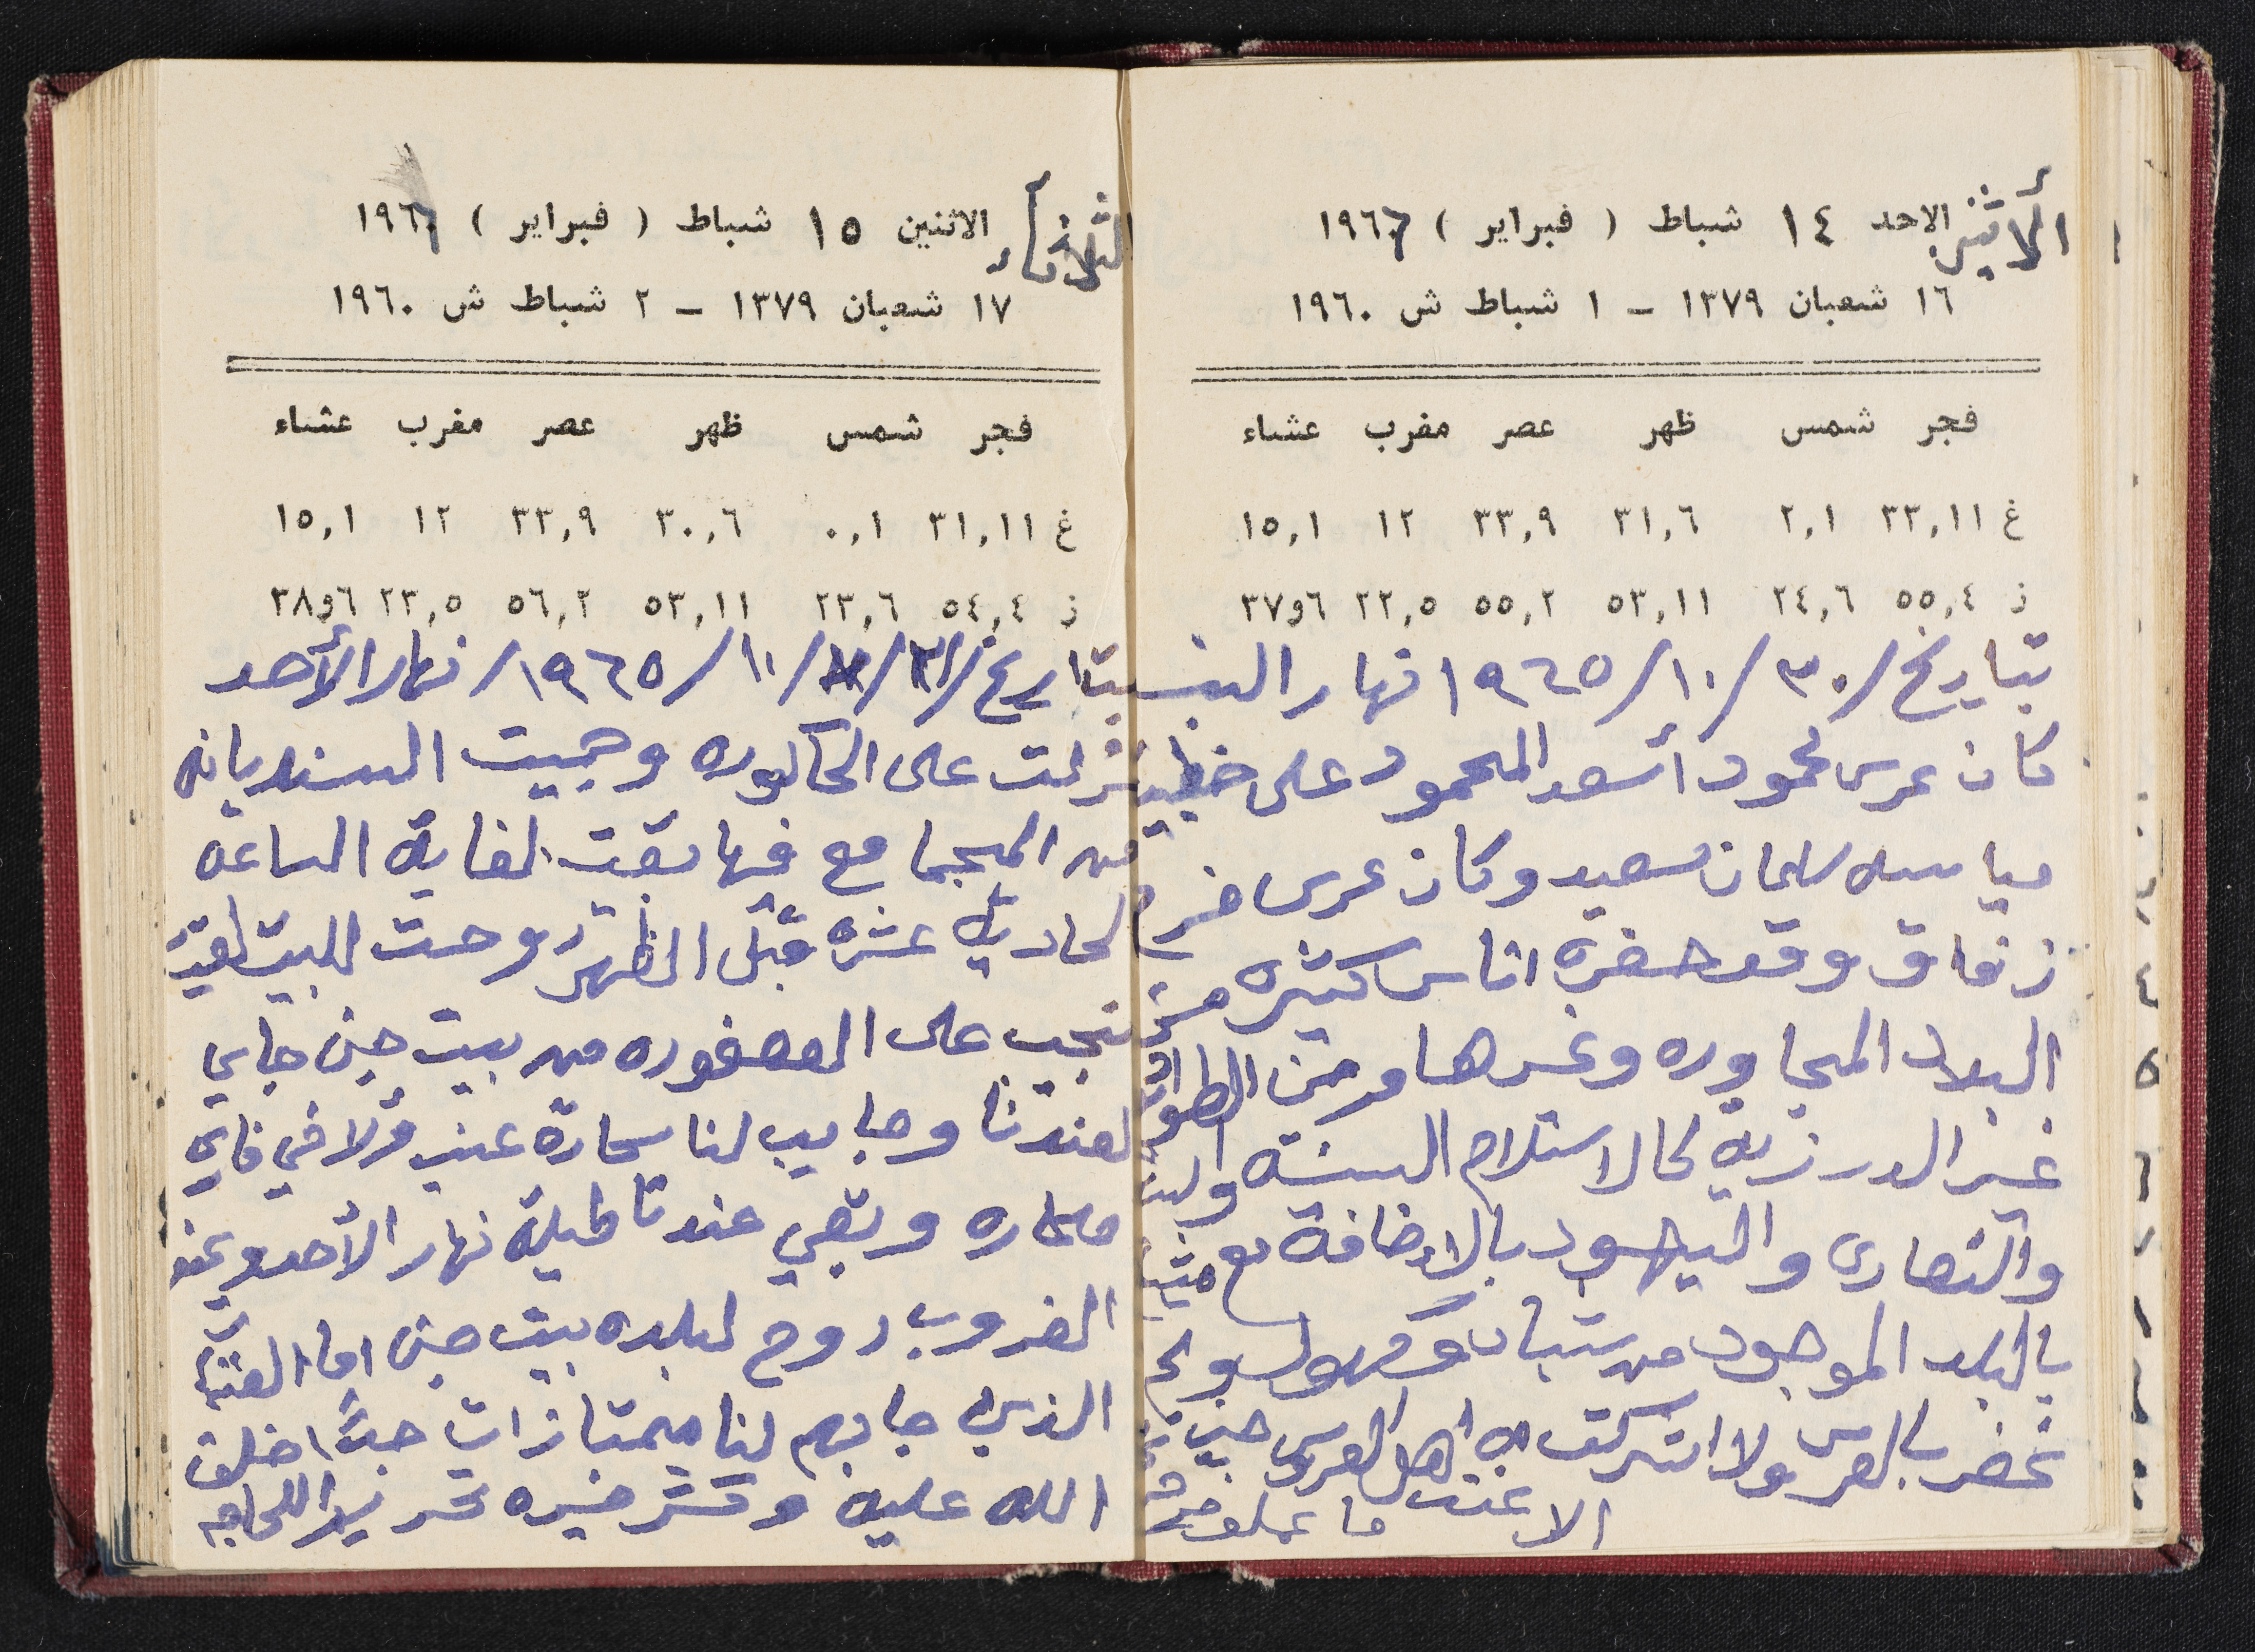 الأثنين الاحد ١٤ شباط ( فبراير ) ١٩٦٦
١٦ شعبان ١٣٧٩ – ١ شباط ش ١٩٦٠
فجر شمس ظهر عصر مغرب عشاء
غ ٣٣,١١ ٢,١ ٣١,٦ ٣٣,٩ ١٢ ١٥,١
ز ٥٥,٤ ٢٤,٦ ٥٣,١١ ٥٥,٢ ٢٢,٥ ٦و٣٧
بتاريخ/٣٠/١٠/١٩٦٥ نهار السبت
كان عرس محمود أسعد المحمود على خطيبته
مياسه سلمان سعيد وكان عرس فرح
زفاف وقد حضره اناس كثيره من
البلاد المجاوره وغيرها ومن الطوائف
غير الدرزية كالاستلام السنة
والنصارى واليهود بالإضافة مع
بالبلد الموجود من شباب وكهول ولم
نحضر بالعرس ولا اشتركت به أهل العرس
الا عنب ما عملو
الثلاثاء الاثنين ١٥ شباط ( فبراير ) ١٩٦٦
١٧ شعبان ١٣٧٩ – ٢ شباط ش ١٩٦٠
فجر شمس ظهر عصر مغرب عشاء
غ ٣١,١١ ٠,١ ٣٠,٦ ٣٣,٩ ١٢ ١٥,١
ز ٥٤,٤ ٢٣,٦ ٥٣,١١ ٥٦,٢ ٢٣,٥ ٦و٣٨
بتاريخ/٣١/١٠/١٩٦٥/نهار الأحد
نزلت على الحاكوره وجبيت السنديانه
من المجامع فيها بقيت لغاية الساعه
الحادية عشره قبل الظهر روحت للبيت لقيت
نجيب على العصفوره من بيت جن جاي
لعندنا وجايب لنا سحارة عنب
وبقي عندنا طيلة نهار الأحد وعند
الغروب روح لبلده بيت جن اما العنبات
الذي جابهم لنا ممتازات جداً اخلف
الله عليه وكثر خيره